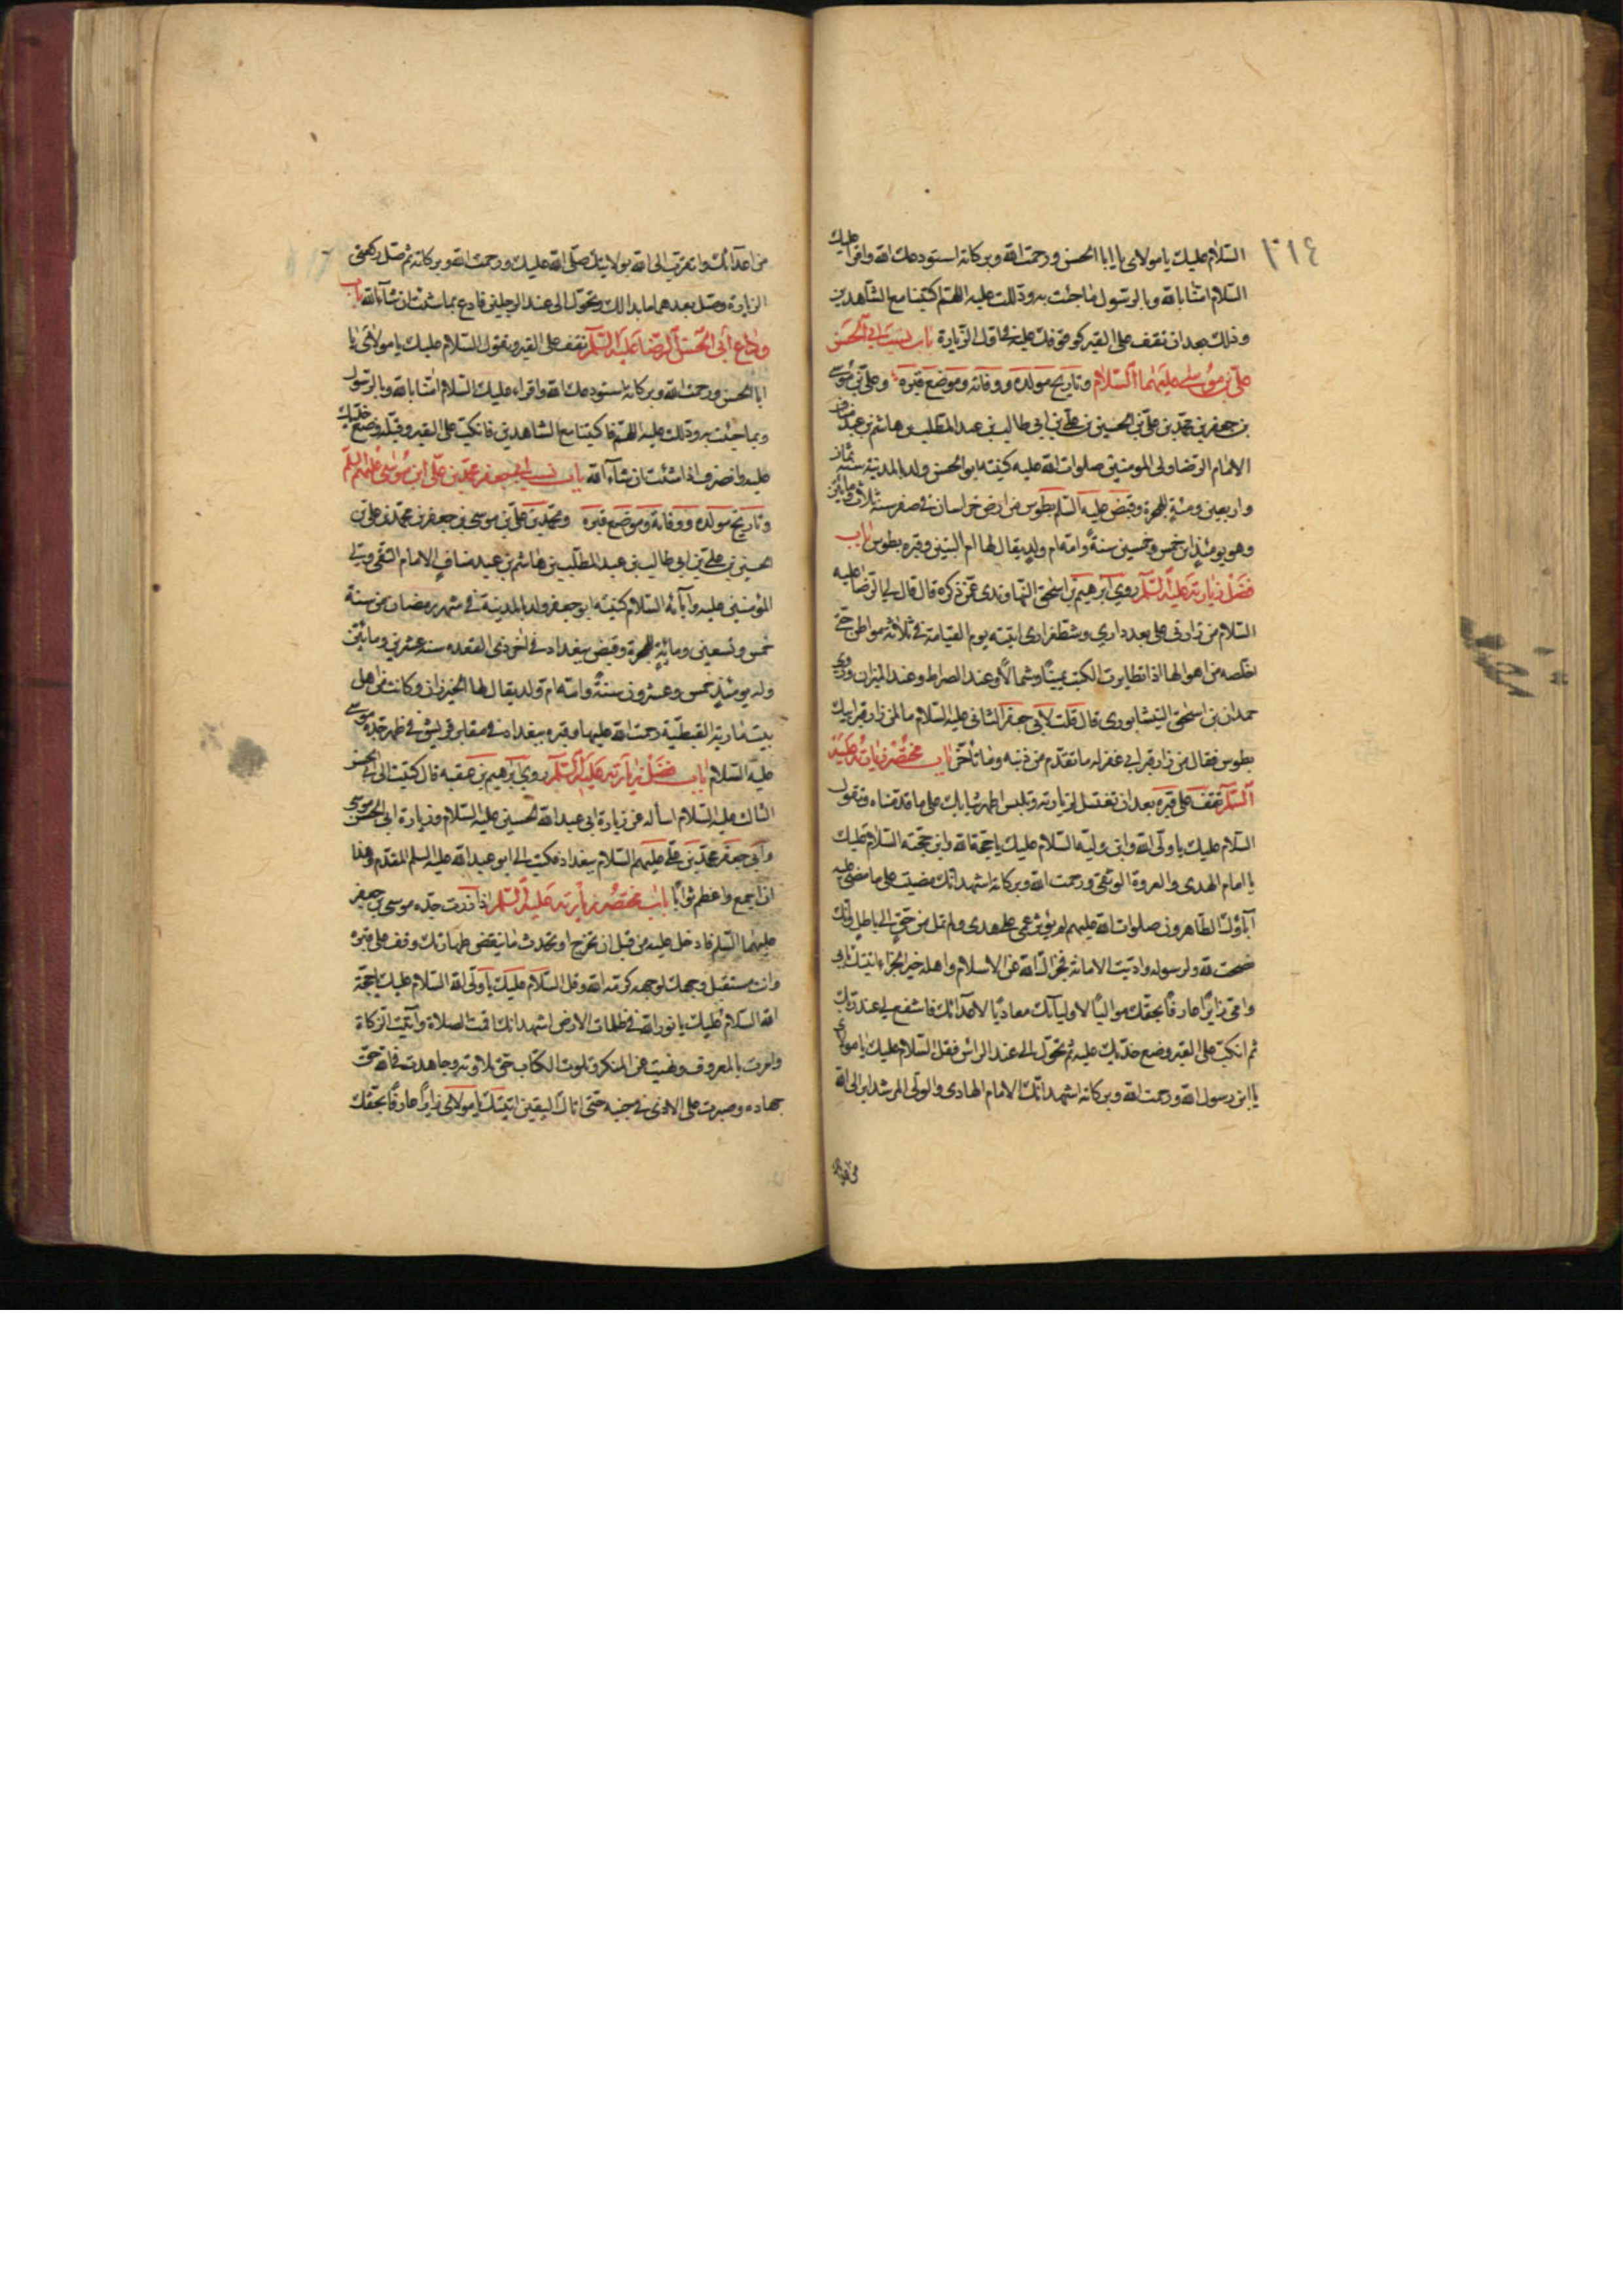 ٣١٤
السلام عليك يا مولاى يا ابا الحسن ورحمت الله وبركاته استودعك الله واقرأ عليك
السلام امنّا بالله وبالرسول وبما جئت به ودللت عليه اللهم اكتبنا مع الشاهدين
وذلك بعد ان تقف على القبر كوقوفك عليه فى اول الزيارة باب نسب ابي الحسن
علي بن موسى عليهما السلام وتاريخ مولده ووفاته وموضع قبره وعلي بن موسى
بن جعفر بن محمد بن علي بن الحسين بن علي بن ابي طالب بن عبد المطلب بن هاشم بن عبد مناف
الامام الرضا ولى المومنين صلوات الله عليه كنيته ابو الحسن ولد بالمدينة سنة ثمان
واربعين ومئة للهجرة وقبض عليه السلم بطوس من ارض خراسان فى صفر سنة ثلاث ومأتين
وهو يومئذ ابن خمس وخمسين سنة وامه ام ولد يقال لها ام البنين وقبره بطوس باب
فضل زيارته عليه السلم روى ابرهيم بن اسحق النهاوندى عمن ذكره قال قال لى الرضا عليه
السلام من زارنى على بعد دارى وشط مزارى اتيته يوم القيامة فى ثلاثة مواطن حتى
اخلصه من اهوالها اذا تطايرت الكتب يمينا وشمالا وعند الصراط وعند الميزان وروى
حمدان بن اسحق النيشابورى قال قلت لابي جعفر الثانى عليه السلام ما لمن زار قبر ابيك
بطوس فقال من زار قبر ابى غفر له ما تقدم من ذنبه وما تأخر باب مختصر زيارته عليه
السلم تقف على قبره بعد ان تغتسل لزيارته وتلبس اطهر ثيابك على ما قدمناه وتقول
السلام عليك يا ولى الله وابن وليه السلام عليك يا حجة الله وابن حجته السلام عليك
يا امام الهدى والعروة الوثقى ورحمت الله وبركاته اشهد انك مضيت على ما مضى عليه
آباؤك الطاهرون صلوات الله عليهم لم تؤثر عمى على هدى ولم تمل من حق الى باطل وانك
نصحت لله ولرسوله واديت الامانة فجزاك الله عن الاسلام واهله خير الجزاء اتيتك بابى
وامى زايرا عارفا بحقك مواليا لاوليائك معاديا لاعدائك فاشفع لى عند ربك
ثم انكب على القبر وضع خديك عليه ثم تحول الى عند الراس فقل السلام عليك يا مولاى
يا ابن رسول الله ورحمت الله وبركاته اشهد انك الامام الهادى والولى المرشد ابرأ الى الله
من اعدائك واتقرب الى الله بولايتك صلى الله عليك ورحمت الله وبركاته ثم صل ركعتى
الزيارة وصل بعدهما ما بدا لك وتحول الى عند الرجلين فادع بما شئت ان شآء الله باب
وداع أبى الحسن الرضا عليه السلم تقف على القبر وتقول السلام عليك يا مولاى يا
ابا الحسن ورحمت الله وبركاته استودعك الله واقراء عليك السلام امنا بالله وبالرسول
وبما جئت به ودللت عليه اللهم فاكتبنا مع الشاهدين فانكب على القبر وقبله وضع خديك
عليه وانصرف اذا شئت ان شاء الله باب نسب ابي جعفر محمد بن علي ابن موسى عليهم السلم
وتاريخ مولده ووفاته وموضع قبره ومحمد بن علي بن موسى بن جعفر بن محمد بن علي بن
الحسين بن علي بن ابي طالب بن عبد المطلب بن هاشم بن عبد مناف الامام التقى ولى
المؤمنين عليه وآبائه السلام كنيته ابو جعفر ولد بالمدينة فى شهر رمضان من سنة
خمس وتسعين ومائة للهجرة وقبض ببغداد فى اخر ذى القعده سنة عشرين ومائتين
وله يومئذ خمس وعشرون سنة وامه ام ولد يقال لها الخيزران وكانت من اهل
بيت مارية القبطية رحمت الله عليها وقبره ببغداد فى مقابر قريش فى ظهر جده موسى
عليه السلام باب فضل زيارته عليه السلم روى ابرهيم بن عقبه قال كتبت الى ابى الحسن
الثالث عليه السلام اسأله عن زيارة ابى عبد الله الحسين عليه السلام وزيارة ابى الحسن موسى
وابى جعفر محمد بن علي عليهم السلام ببغداد فكتب الى ابو عبد الله عليه السلم المقدم وهذا
ان اجمع واعظم ثوابا باب مختصر زيارته عليه السلم اذا زرت جده موسى بن جعفر
عليهما السلم فادخل عليه من قبل ان تخرج او تحدث ما ينقض طهارتك وقف على قبره
وانت مستقبل وجهك لوجهه كرمه الله وقل السلام عليك يا ولى الله السلام عليك يا حجة
الله السلام عليك يا نور الله فى ظلمات الارض اشهد انك اقمت الصلاة وآتيت الزكاة
وامرت بالمعروف ونهيت عن المنكر وتلوت الكتاب حق تلاوته وجاهدت فى الله حق
جهاده وصبرت على الاذى فى جنبه حتى اتاك اليقين اتيتك يا مولاى زايرا عارفا بحقك